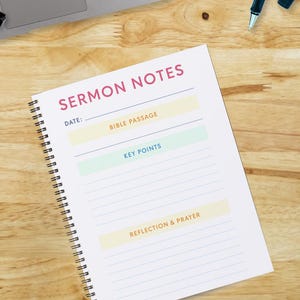 SERMON NOTES
DATE:
BIBLE PASSAGE
KEY POINTS
REFLECTION & PRAYER